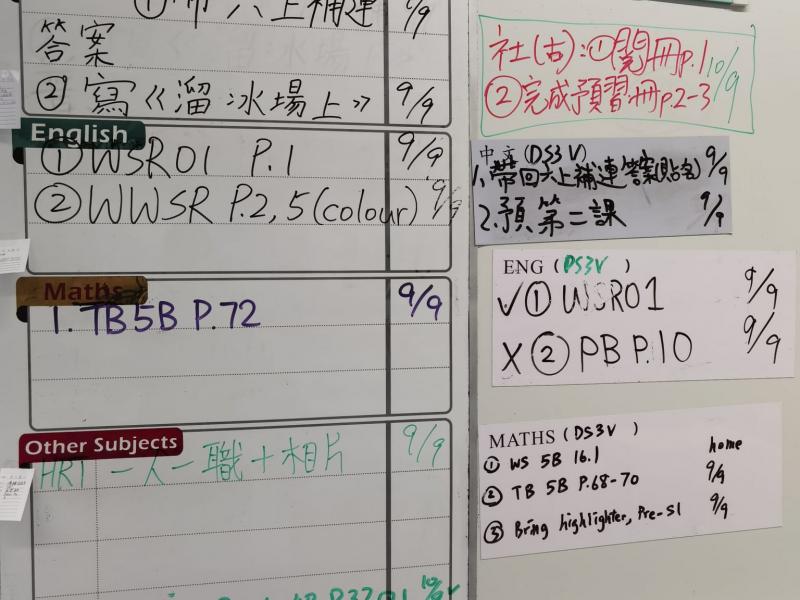 ①帶六上補連 9/9
答案
② 寫《溜冰場上》 9/9
English
① WSR01 P.1 9/9
② WWSR P.2,5(colour) 9/9
Maths
1. TB5B P.72 9/9
Other Subjects
HRT 一人一職+相片 9/9
社(古):①閱冊p.1
②完成預習冊p.2-3
10/9
中文(DS3V)
1.帶回六上補連答案 9/9
2.預第二課 9/9
ENG (DS3V)
✓① WSR01 9/9
X② PB P.10 9/9
MATHS (DS3V)
① WS 5B 16.1 home
② TB 5B P.68-70 9/9
③ Bring highlighter, Pre-S1 9/9